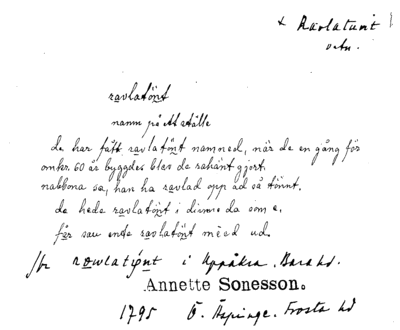 x Ravlatunt
ravlatönt
namn på ett ställe
de har fått ravlatönt namned, när de en gång för
omkr. 60 år byggdes blev de rahänt gjort.
nabbona sa, han ha ravlad opp ad så tönnt.
de hede ravlatönt i dinna da som e,
får sau ente ravlatönt méed ud.
Jfr rowlatiönt i Uppåkra, Bara hd.
Annette Sonesson.
1795 Ö. Äspinge. Frosta hd